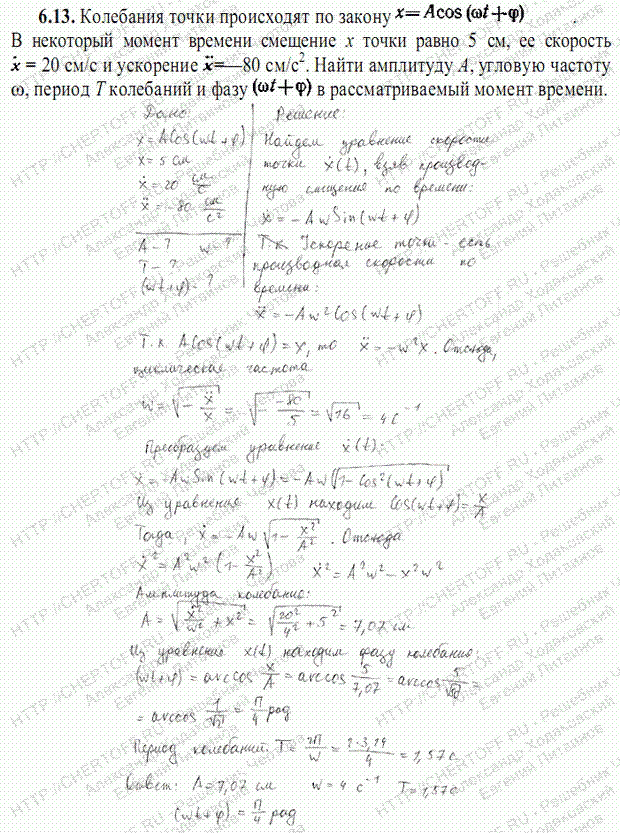 6.13. Колебания точки происходят по закону x=Acos(ωt+φ) .
В некоторый момент времени смещение x точки равно 5 см, ее скорость
ẋ = 20 см/с и ускорение ẍ=—80 см/с². Найти амплитуду A, угловую частоту
ω, период T колебаний и фазу (ωt+φ) в рассматриваемый момент времени.
Дано: Решение:
x=ACos(wt+φ) Найдем уравнение скорости
x=5 см точки ẋ(t), взяв производ-
ẋ=20 см/с ную смещения по времени:
ẍ=-80 см/с² ẋ=-AwSin(wt+φ)
A-? w-? Т.к. Ускорение точки - есть
T-? производная скорости по
(wt+φ)-? времени:
ẍ=-Aw²Cos(wt+φ)
Т.к ACos(wt+φ)=x, то ẍ=-w²x. Отсюда,
циклическая частота
w=√(-ẍ/x)=√(-(-80)/5)=√16=4с⁻¹
Преобразуем уравнение ẋ(t):
ẋ=-AwSin(wt+φ)=-Aw√(1-Cos²(wt+φ))
Из уравнения x(t) находим Cos(wt+φ)=x/A
Тогда, ẋ=-Aw√(1-x²/A²). Отсюда
ẋ²=A²w²(1-x²/A²) ẋ²=A²w²-x²w²
Амплитуда колебаний:
A=√(ẋ²/w²+x²)=√(20²/4²+5²)=7,07 см
Из уравнения x(t) находим фазу колебаний:
(wt+φ)=arccos x/A=arccos 5/7,07=arccos 5/√50=
=arccos 1/√2=π/4 рад
Период колебаний: T=2π/w=2·3,14/4=1,57с
Ответ: A=7,07 см w=4 с⁻¹ T=1,57с
(wt+φ)=π/4 рад
HTTP://CHERTOFF.RU - Решебник Чертова
Александр Ходаковский
Евгений Литвинов